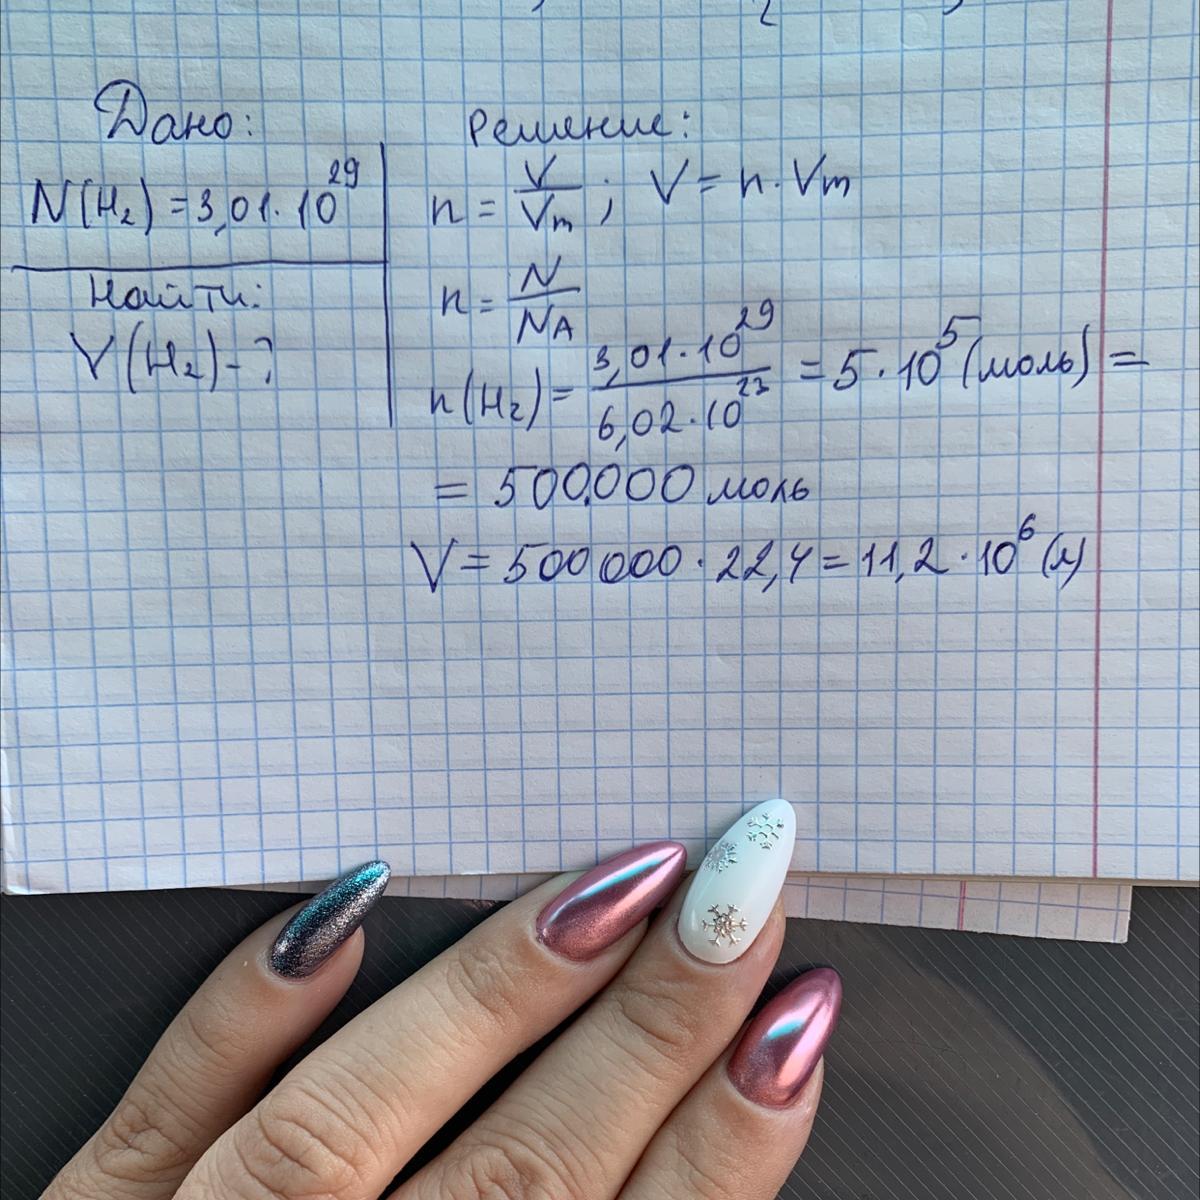 Дано:
N(H₂) = 3,01 · 10²⁹
Найти:
V(H₂) - ?
Решение:
n = V/Vm ; V = n · Vm
n = N/NA
n(H₂) = 3,01 · 10²⁹ / 6,02 · 10²³ = 5 · 10⁵ (моль) =
= 500.000 моль
V = 500 000 · 22,4 = 11,2 · 10⁶ (л)